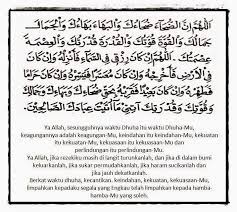 اَللّٰهُمَّ اِنَّ الضُّحَآءَ ضُحَاءُكَ وَالْبَهَاءَ بَهَاءُكَ وَالْجَمَالَ
جَمَالُكَ وَالْقُوَّةَ قُوَّتُكَ وَالْقُدْرَةَ قُدْرَتُكَ وَالْعِصْمَةَ
عِصْمَتُكَ. اَللّٰهُمَّ اِنْ كَانَ رِزْقِى فِى السَّمَآءِ فَأَنْزِلْهُ وَاِنْ كَانَ
فِى الْاَرْضِ فَأَخْرِجْهُ وَاِنْ كَانَ مُعَسَّرًا فَيَسِّرْهُ وَاِنْ كَانَ حَرَامًا
فَطَهِّرْهُ وَاِنْ كَانَ بَعِيْدًا فَقَرِّبْهُ بِحَقِّ ضُحَاءِكَ وَبَهَاءِكَ وَجَمَالِكَ
وَقُوَّتِكَ وَقُدْرَتِكَ آتِنِى مَآاَتَيْتَ عِبَادَكَ الصَّالِحِيْنَ.
Ya Allah, sesungguhnya waktu Dhuha itu waktu Dhuha-Mu,
keagungannya adalah keagungan-Mu, keindahan itu keindahan-Mu, kekuatan
itu kekuatan-Mu, kekuasaan itu kekuasaan-Mu dan
perlindungan itu perlindungan-Mu.
Ya Allah, jika rezekiku masih di langit turunkanlah, dan jika di dalam bumi
keluarkanlah, jika sukar permudahkanlah, jika haram sucikanlah dan
jika jauh dekatkanlah.
Berkat waktu dhuha, kecantikan, keindahan, kekuatan, kekuasaan-Mu,
limpahkan kepadaku segala yang Engkau telah limpahkan kepada hamba-
hamba-Mu yang soleh.